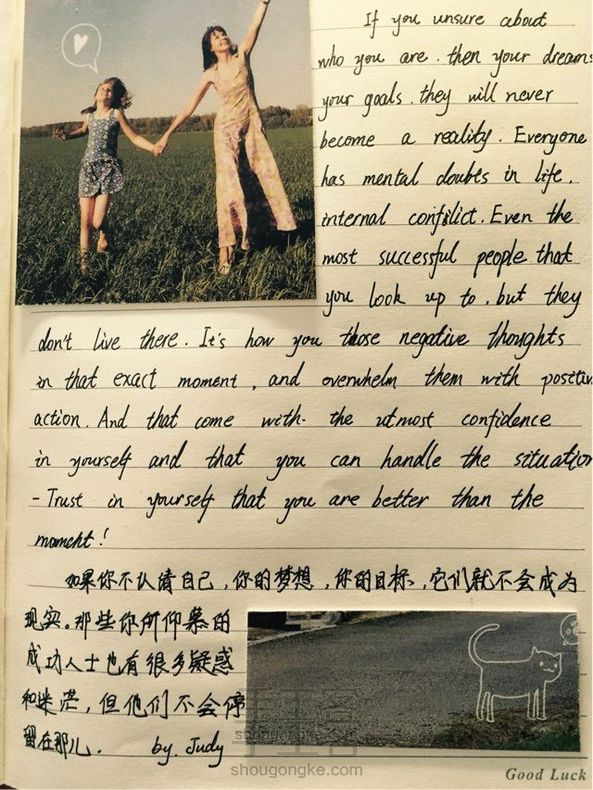 If you unsure about
who you are. then your dreams
your goals. they will never
become a reality. Everyone
has mental doubts in life.
internal conflict. Even the
most successful people that
you look up to, but they
don't live there. It's how you those negative thoughts
in that exact moment, and overwhelm them with positiv
action. And that come with the utmost confidence
in yourself and that you can handle the situation
- Trust in yourself that you are better than the
moment!
如果你不认清自己,你的梦想,你的目标,它们就不会成为
现实。那些你所仰慕的
成功人士也有很多疑惑
和迷茫,但他们不会停
留在那儿. by. Judy
手工客
shougongke.com
Good Luck